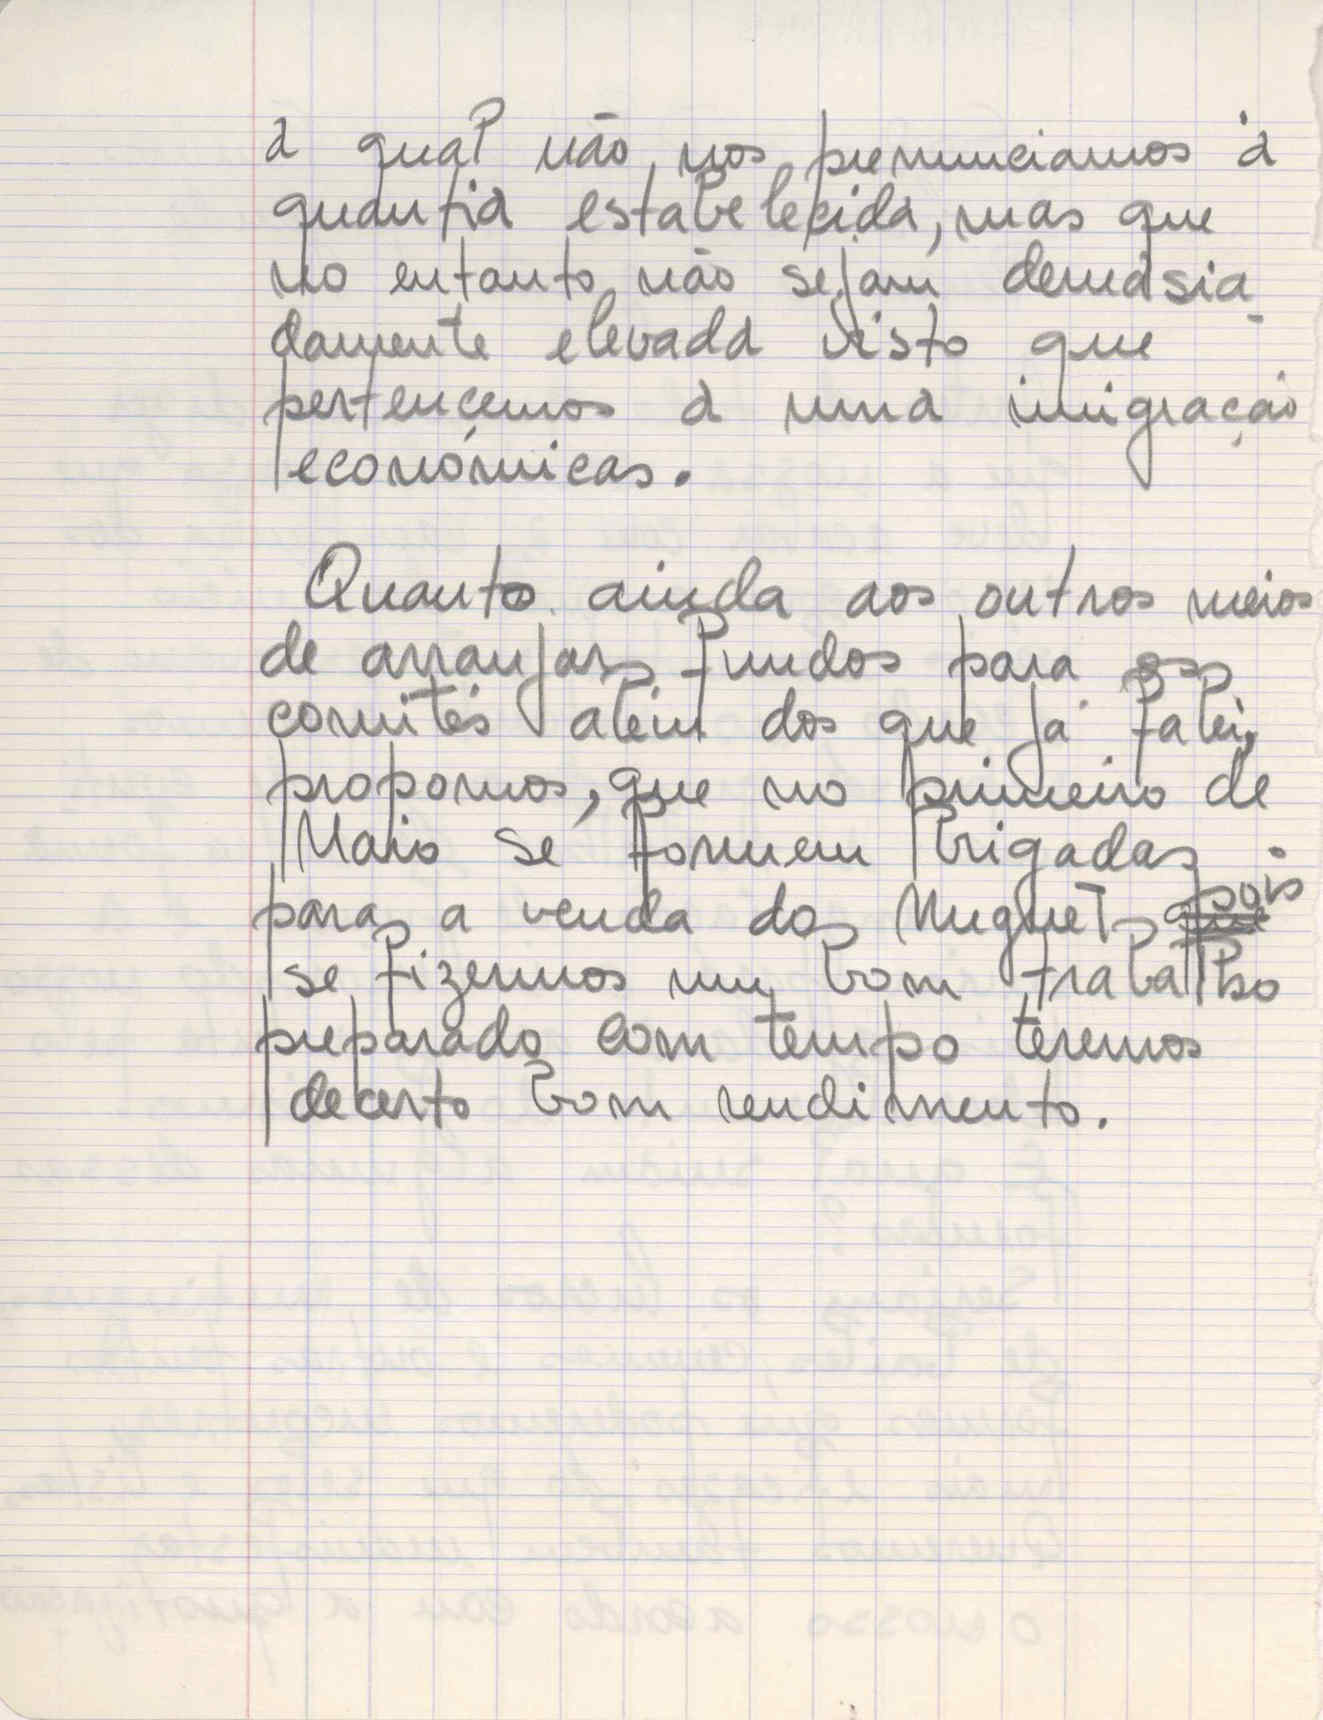 a qual não nos prenunciamos à
quantia estabelecida, mas que
no entanto não sejam demásia-
damente elevada visto que
pertencemos a uma imigração
económicas.
Quanto ainda aos outros meios
de arranjar fundos para os
comités além dos que já falei,
propomos, que no primeiro de
Maio se formem brigadas
para a venda do Muguet pois
se fizermos um bom trabalho
preparado com tempo teremos
decerto bom rendimento.